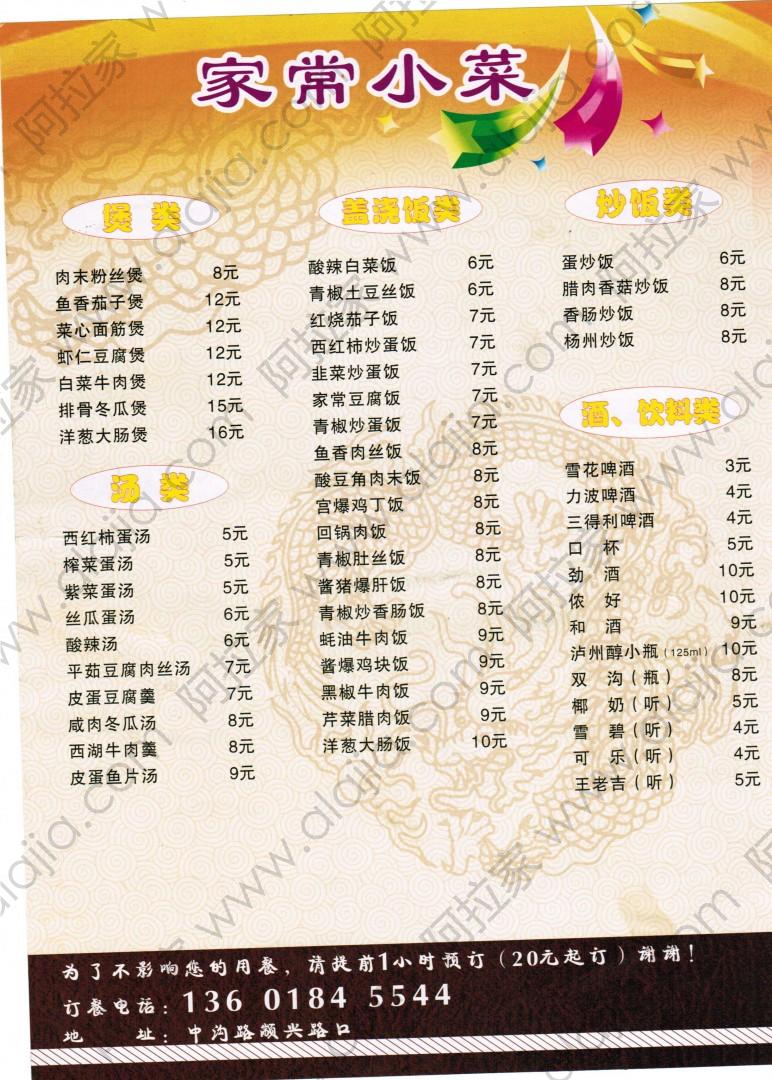 家常小菜
煲类
肉末粉丝煲 8元
鱼香茄子煲 12元
菜心面筋煲 12元
虾仁豆腐煲 12元
白菜牛肉煲 12元
排骨冬瓜煲 15元
洋葱大肠煲 16元
汤类
西红柿蛋汤 5元
榨菜蛋汤 5元
紫菜蛋汤 5元
丝瓜蛋汤 6元
酸辣汤 6元
平茹豆腐肉丝汤 7元
皮蛋豆腐羹 7元
咸肉冬瓜汤 8元
西湖牛肉羹 8元
皮蛋鱼片汤 9元
盖浇饭类
酸辣白菜饭 6元
青椒土豆丝饭 6元
红烧茄子饭 7元
西红柿炒蛋饭 7元
韭菜炒蛋饭 7元
家常豆腐饭 7元
青椒炒蛋饭 7元
鱼香肉丝饭 8元
酸豆角肉末饭 8元
宫爆鸡丁饭 8元
回锅肉饭 8元
青椒肚丝饭 8元
酱猪爆肝饭 8元
青椒炒香肠饭 8元
蚝油牛肉饭 9元
酱爆鸡块饭 9元
黑椒牛肉饭 9元
芹菜腊肉饭 9元
洋葱大肠饭 10元
炒饭类
蛋炒饭 6元
腊肉香菇炒饭 8元
香肠炒饭 8元
杨州炒饭 8元
酒、饮料类
雪花啤酒 3元
力波啤酒 4元
三得利啤酒 4元
口杯 5元
劲酒 10元
侬好 10元
和酒 9元
泸州醇小瓶（125ml） 10元
双沟（瓶） 8元
椰奶（听） 5元
雪碧（听） 4元
可乐（听） 4元
王老吉（听） 5元
为了不影响您的用餐，请提前1小时预订（20元起订）谢谢！
订餐电话：136 0184 5544
地址：中沟路颛兴路口
阿拉家 www.alajia.com